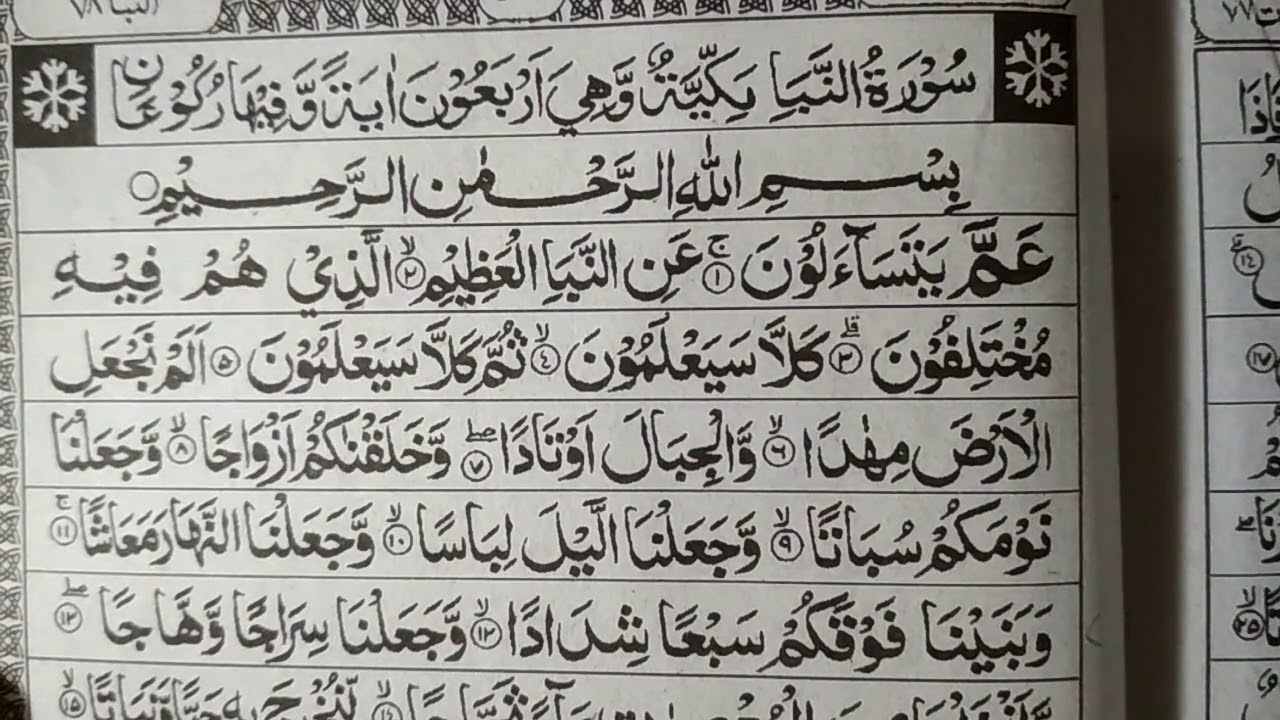 النبا ٧٨
ت ٧٧
سُوْرَةُ النَّبَاِ مَكِّيَّةٌ وَّهِيَ اَرْبَعُوْنَ اٰيَةً وَّفِيْهَا رُكُوْعَانِ
بِسْمِ اللّٰهِ الرَّحْمٰنِ الرَّحِيْمِ ○
عَمَّ يَتَسَآءَلُوْنَ ۚ﴿١﴾ عَنِ النَّبَاِ الْعَظِيْمِ ۙ﴿٢﴾ الَّذِيْ هُمْ فِيْهِ
مُخْتَلِفُوْنَ ؕ﴿٣﴾ كَلَّا سَيَعْلَمُوْنَ ۙ﴿٤﴾ ثُمَّ كَلَّا سَيَعْلَمُوْنَ ﴿٥﴾ اَلَمْ نَجْعَلِ
الْاَرْضَ مِهٰدًا ۙ﴿٦﴾ وَّالْجِبَالَ اَوْتَادًا ۖ﴿٧﴾ وَّخَلَقْنٰكُمْ اَزْوَاجًا ۙ﴿٨﴾ وَّجَعَلْنَا
نَوْمَكُمْ سُبَاتًا ۙ﴿٩﴾ وَّجَعَلْنَا الَّيْلَ لِبَاسًا ۙ﴿١٠﴾ وَّجَعَلْنَا النَّهَارَ مَعَاشًا ۚ﴿١١﴾
وَبَنَيْنَا فَوْقَكُمْ سَبْعًا شِدَادًا ۙ﴿١٢﴾ وَّجَعَلْنَا سِرَاجًا وَّهَّاجًا ۖ﴿١٣﴾